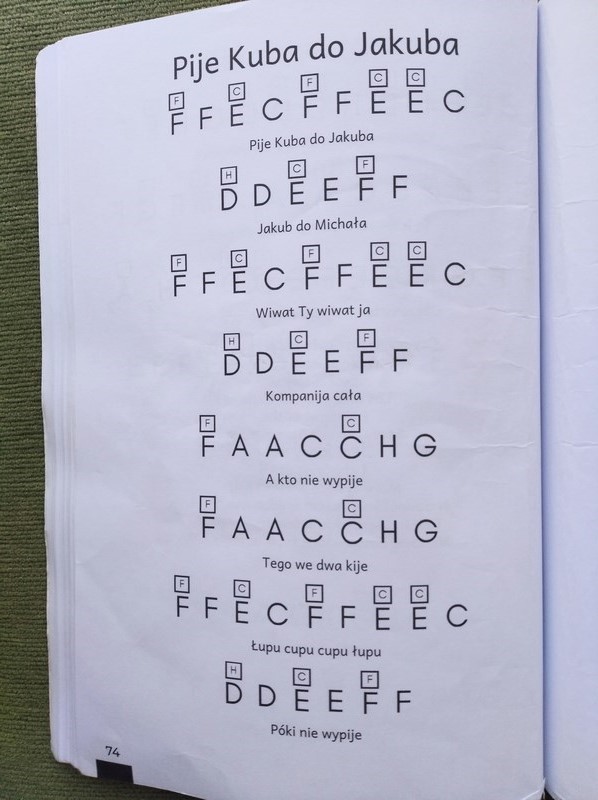 Pije Kuba do Jakuba
F C F C C
F F E C F F E E C
Pije Kuba do Jakuba
H C F
D D E E F F
Jakub do Michała
F C F C C
F F E C F F E E C
Wiwat Ty wiwat ja
H C F
D D E E F F
Kompanija cała
F C
F A A C C H G
A kto nie wypije
F C
F A A C C H G
Tego we dwa kije
F C F C C
F F E C F F E E C
Łupu cupu cupu łupu
H C F
D D E E F F
Póki nie wypije
74